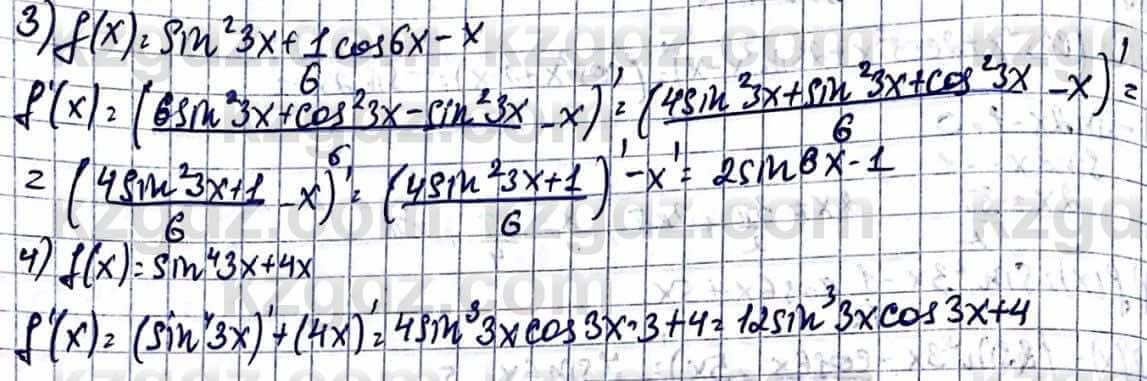 3) f(x)=sin²3x+1/6cos6x-x
f'(x)=(6sin²3x+cos²3x-sin²3x/6-x)'=(4sin²3x+sin²3x+cos²3x/6-x)'=
=(4sin²3x+1/6-x)'=(4sin²3x+1/6)'-x'=2sin6x-1
4) f(x)=sin⁴3x+4x
f'(x)=(sin⁴3x)'+(4x)'=4sin³3xcos3x·3+4=12sin³3xcos3x+4